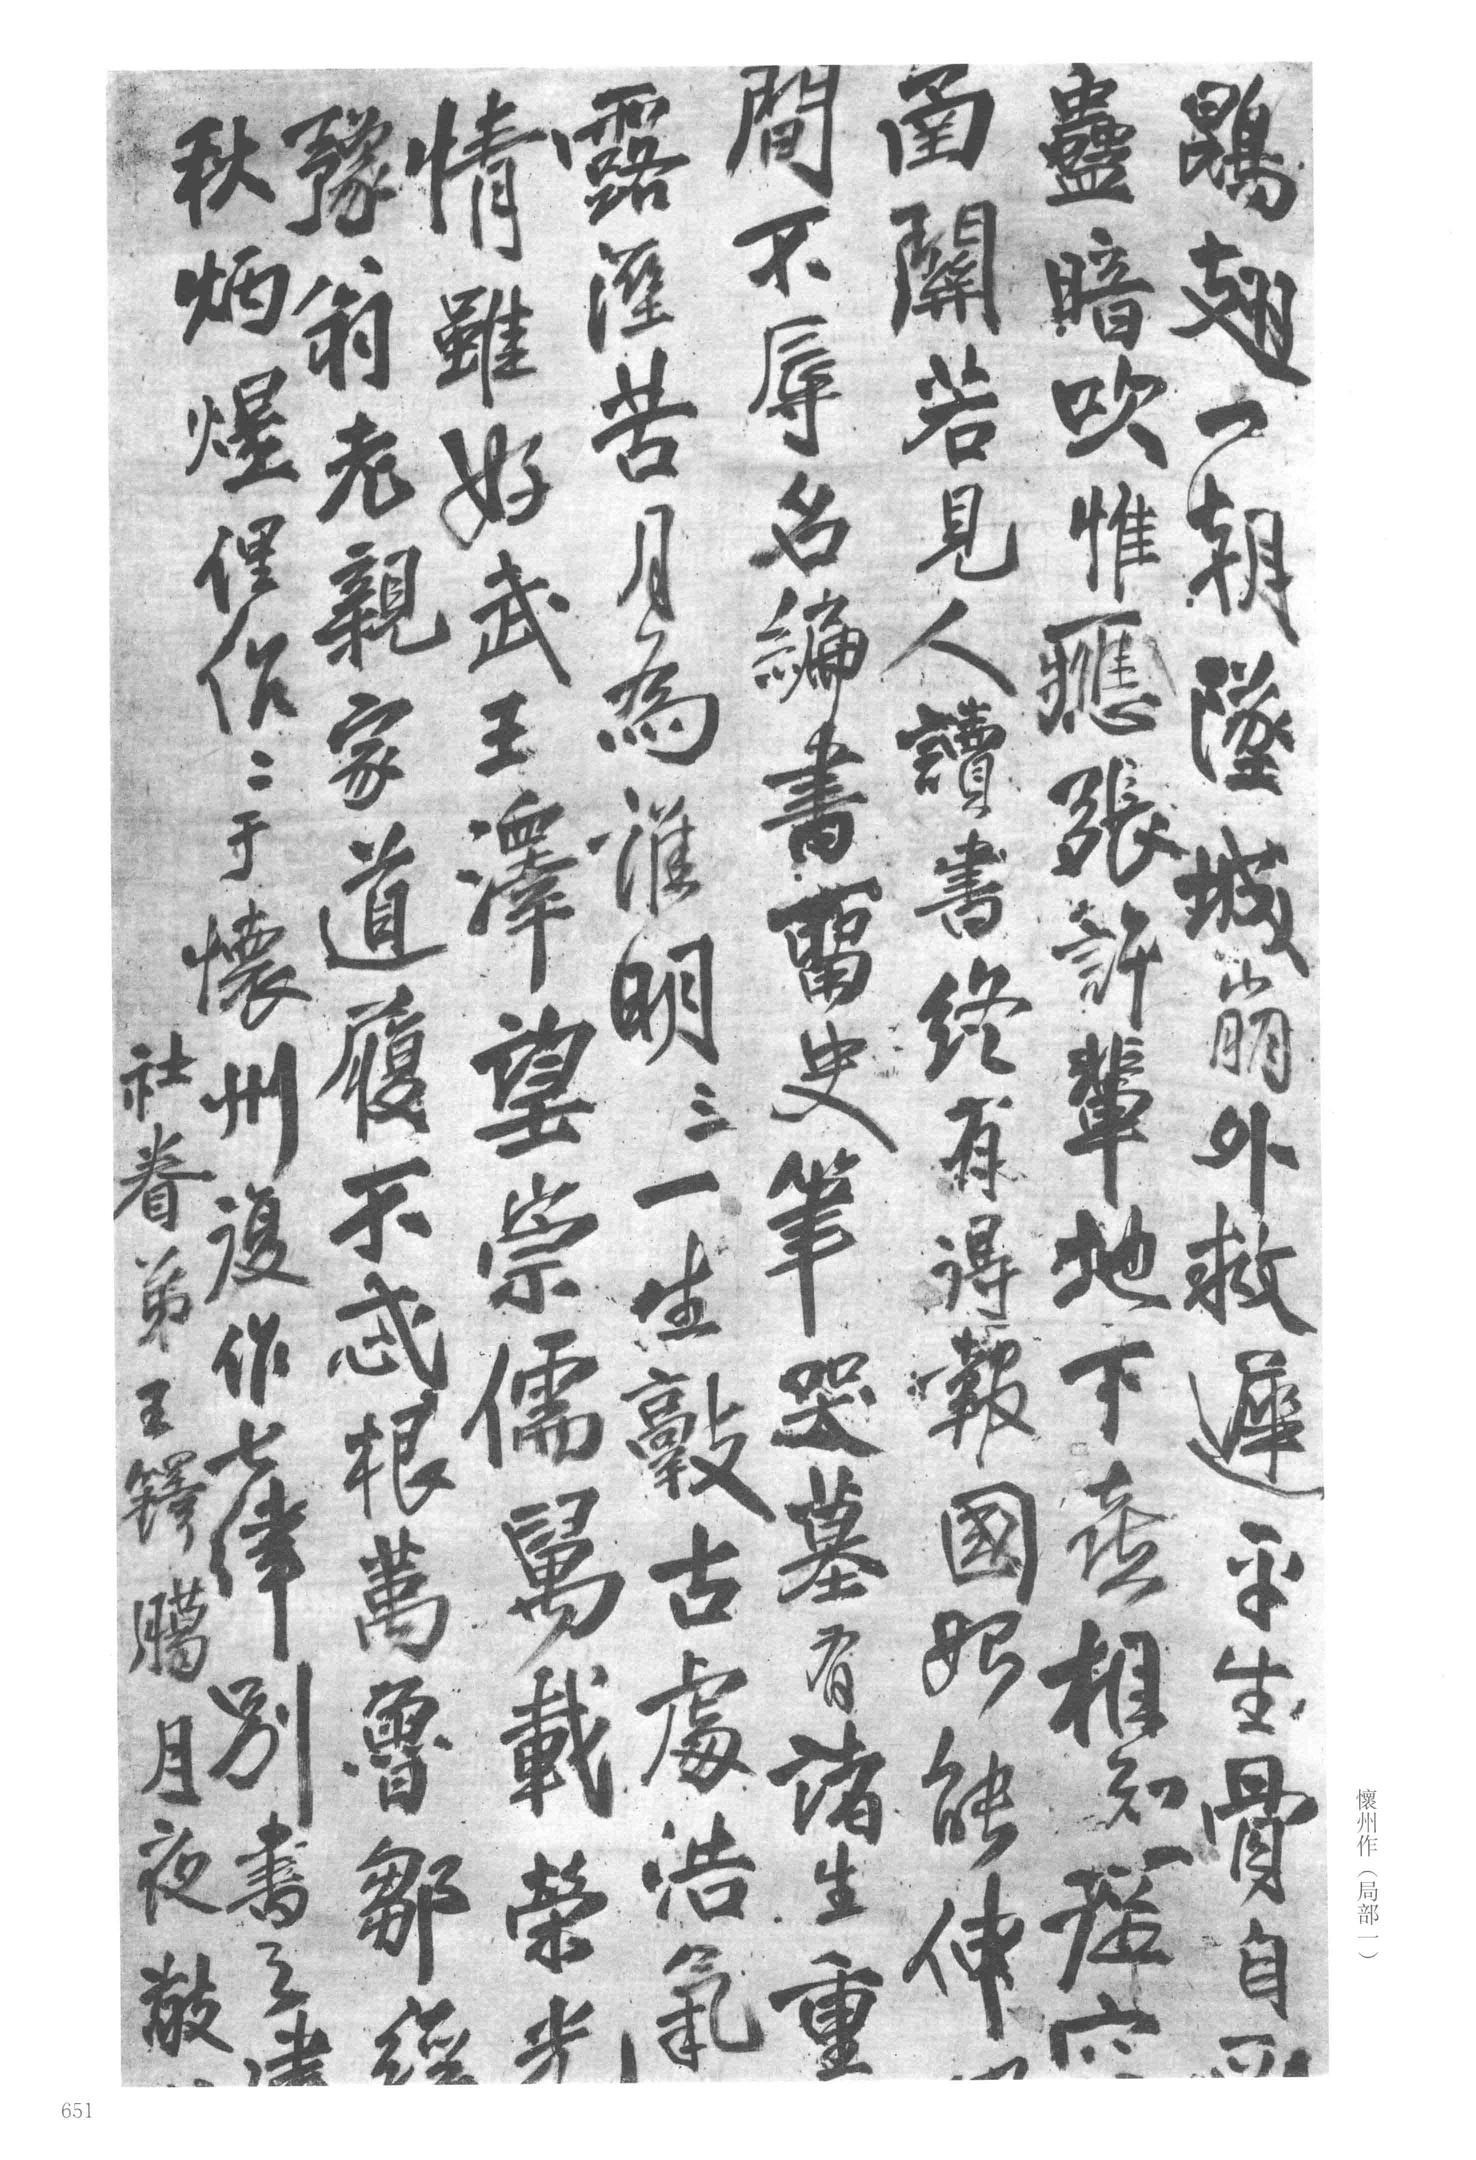 鶡翅一朝墜城崩外救遲平生骨自
蠱暗吹惟應張許輩地下喜相知
函關若見人讀書終有得報國始能伸
間不辱名編書留史筆哭墓有諸生重
露溼苦月為誰明三一生敲古處浩氣
情雖好武王澤望崇儒萬載榮光
豫翁老親家道履不忒根萬魯鄒經
秋炳煜俚作二于懷州復作七律別書之
社眷弟王鐸臈月夜敬
懷州作（局部一）
651